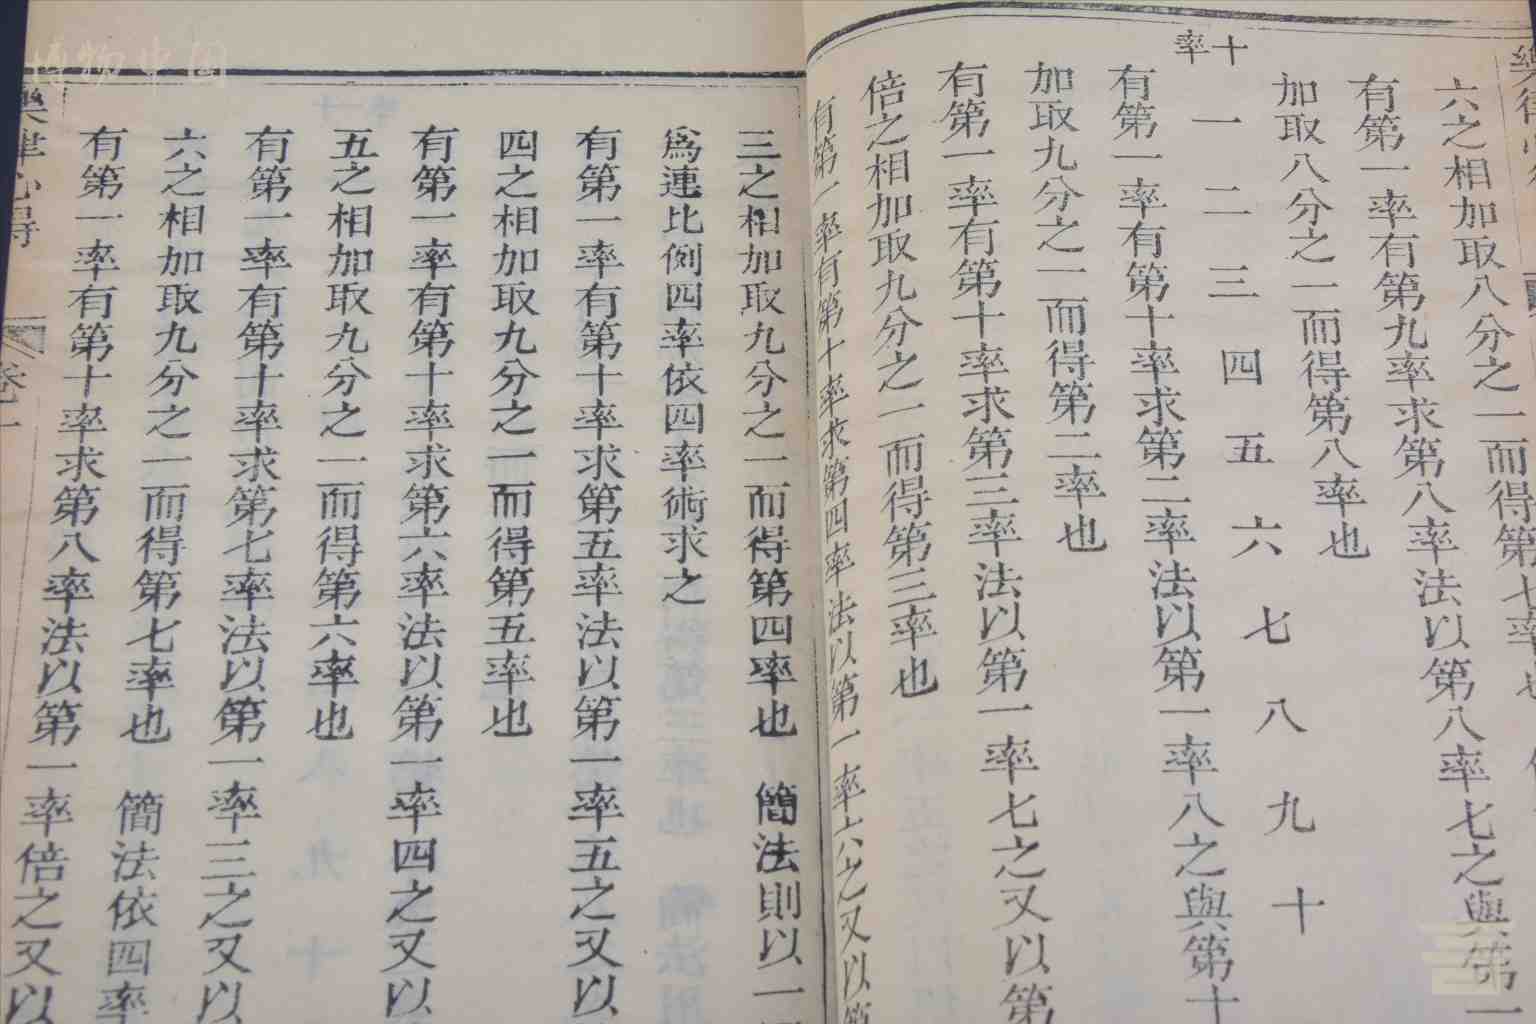 六之相加取八分之一而得第七率也
有第一率有第九率求第八率法以第八率七之與第一
加取八分之一而得第八率也
十率 一 二 三 四 五 六 七 八 九 十
有第一率有第十率求第二率法以第一率八之與第十
加取九分之一而得第二率也
有第一率有第十率求第三率法以第一率七之又以第
倍之相加取九分之一而得第三率也
有第一率有第十率求第四率法以第一率六之又以第
三之相加取九分之一而得第四率也 簡法則以一
為連比例四率依四率術求之
有第一率有第十率求第五率法以第一率五之又以
四之相加取九分之一而得第五率也
有第一率有第十率求第六率法以第一率四之又以
五之相加取九分之一而得第六率也
有第一率有第十率求第七率法以第一率三之又以
六之相加取九分之一而得第七率也 簡法依四率
有第一率有第十率求第八率法以第一率倍之又以
樂律心得 卷一
博物